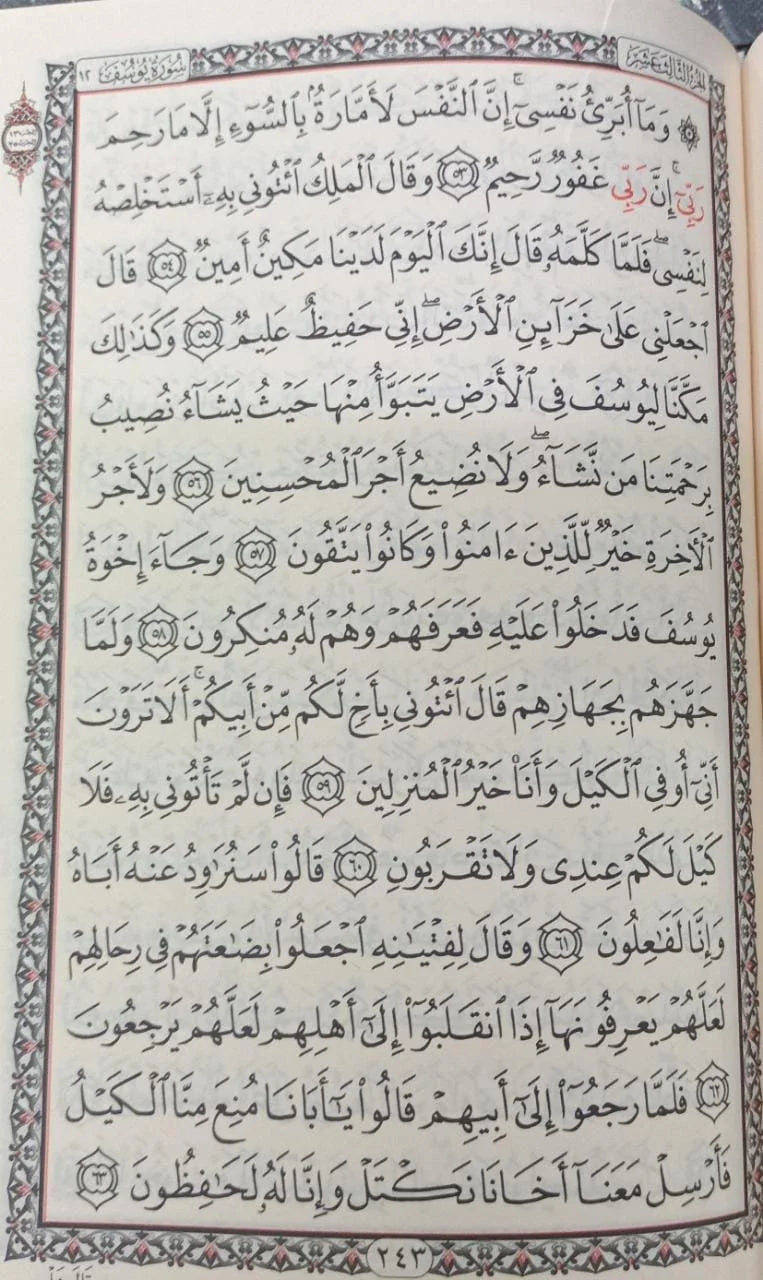 الجزء الثالث عشر
سورة يوسف ١٢
۞ وَمَآ أُبَرِّئُ نَفْسِىٓ ۚ إِنَّ ٱلنَّفْسَ لَأَمَّارَةٌۢ بِٱلسُّوٓءِ إِلَّا مَا رَحِمَ
رَبِّىٓ ۚ إِنَّ رَبِّى غَفُورٌ رَّحِيمٌ ٥٣ وَقَالَ ٱلْمَلِكُ ٱئْتُونِى بِهِۦٓ أَسْتَخْلِصْهُ
لِنَفْسِى ۖ فَلَمَّا كَلَّمَهُۥ قَالَ إِنَّكَ ٱلْيَوْمَ لَدَيْنَا مَكِينٌ أَمِينٌ ٥٤ قَالَ
ٱجْعَلْنِى عَلَىٰ خَزَآئِنِ ٱلْأَرْضِ ۖ إِنِّى حَفِيظٌ عَلِيمٌ ٥٥ وَكَذَٰلِكَ
مَكَّنَّا لِيُوسُفَ فِى ٱلْأَرْضِ يَتَبَوَّأُ مِنْهَا حَيْثُ يَشَآءُ ۚ نُصِيبُ
بِرَحْمَتِنَا مَن نَّشَآءُ ۖ وَلَا نُضِيعُ أَجْرَ ٱلْمُحْسِنِينَ ٥٦ وَلَأَجْرُ
ٱلْأَخِرَةِ خَيْرٌ لِّلَّذِينَ ءَامَنُوا۟ وَكَانُوا۟ يَتَّقُونَ ٥٧ وَجَآءَ إِخْوَةُ
يُوسُفَ فَدَخَلُوا۟ عَلَيْهِ فَعَرَفَهُمْ وَهُمْ لَهُۥ مُنكِرُونَ ٥٨ وَلَمَّا
جَهَّزَهُم بِجَهَازِهِمْ قَالَ ٱئْتُونِى بِأَخٍ لَّكُم مِّنْ أَبِيكُمْ ۚ أَلَا تَرَوْنَ
أَنِّىٓ أُوفِى ٱلْكَيْلَ وَأَنَا۠ خَيْرُ ٱلْمُنزِلِينَ ٥٩ فَإِن لَّمْ تَأْتُونِى بِهِۦ فَلَا
كَيْلَ لَكُمْ عِندِى وَلَا تَقْرَبُونِ ٦٠ قَالُوا۟ سَنُرَٰوِدُ عَنْهُ أَبَاهُ
وَإِنَّا لَفَٰعِلُونَ ٦١ وَقَالَ لِفِتْيَٰنِهِ ٱجْعَلُوا۟ بِضَٰعَتَهُمْ فِى رِحَالِهِمْ
لَعَلَّهُمْ يَعْرِفُونَهَآ إِذَا ٱنقَلَبُوٓا۟ إِلَىٰٓ أَهْلِهِمْ لَعَلَّهُمْ يَرْجِعُونَ
٦٢ فَلَمَّا رَجَعُوٓا۟ إِلَىٰٓ أَبِيهِمْ قَالُوا۟ يَٰٓأَبَانَا مُنِعَ مِنَّا ٱلْكَيْلُ
فَأَرْسِلْ مَعَنَآ أَخَانَا نَكْتَلْ وَإِنَّا لَهُۥ لَحَٰفِظُونَ ٦٣
٢٤٣